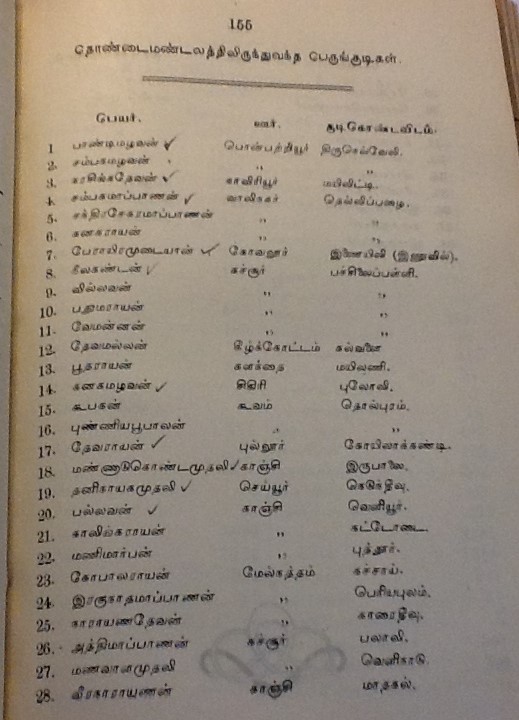 155
தொண்டைமண்டலத்திலிருந்துவந்த பெருங்குடிகள்.
பெயர். ஊர். குடிகொண்டவிடம்.
1 பாண்டிமழவன் ✓ பொன்பற்றியூர் திருநெல்வேலி.
2. சம்பகமழவன் ,, ,,
3. நரசிங்கதேவன் ✓ காவிரியூர் மயிலிட்டி.
4. சம்பகமாப்பாணன் ✓ வாலிநகர் தெல்லிப்பழை.
5. சந்திரசேகரமாப்பாணன் ,, ,,
6. கனகராயன் ,, ,,
7. பேராயிரமுடையான் ✓ கோவலூர் இணையிலி (இணுவில்).
8. நீலகண்டன் ✓ கச்சூர் பச்சிலைப்பள்ளி.
9. வில்லவன் ,, ,,
10. பதுமராயன் ,, ,,
11. வேமன்னன் ,, ,,
12. தேவமல்லன் கீழ்க்கோட்டம் கல்வளை
13. பூதராயன் களந்தை மயிலணி.
14. கனகமழவன் ✓ கிகிரி புலோலி.
15. கூபகன் கூவம் தொல்புரம்.
16. புண்ணியபூபாலன் ,, ,,
17. தேவராயன் ✓ புல்லூர் கோயிலாக்கண்டி.
18. மண்ணாடுகொண்டமுதலி ✓ காஞ்சி இருபாலை,
19. தனிநாயகமுதலி ✓ செய்யூர் நெடுந்தீவு.
20. பல்லவன் ✓ காஞ்சி வெளியூர்.
21. காலிங்கராயன் ,, கட்டோடை.
22. மணிமார்பன் ,, புத்தூர்.
23. கோபாலராயன் மேல்கத்தம் கச்சாய்.
24. இரகுநாதமாப்பாணன் ,, பெரியபுலம்.
25. நாராயணதேவன் ,, காரைதீவு.
26. அத்திமாப்பாணன் கச்சூர் பலாலி.
27. மணவாளமுதலி ,, வெளிகாடு.
28. வீரநாராயணன் காஞ்சி மாதகல்.